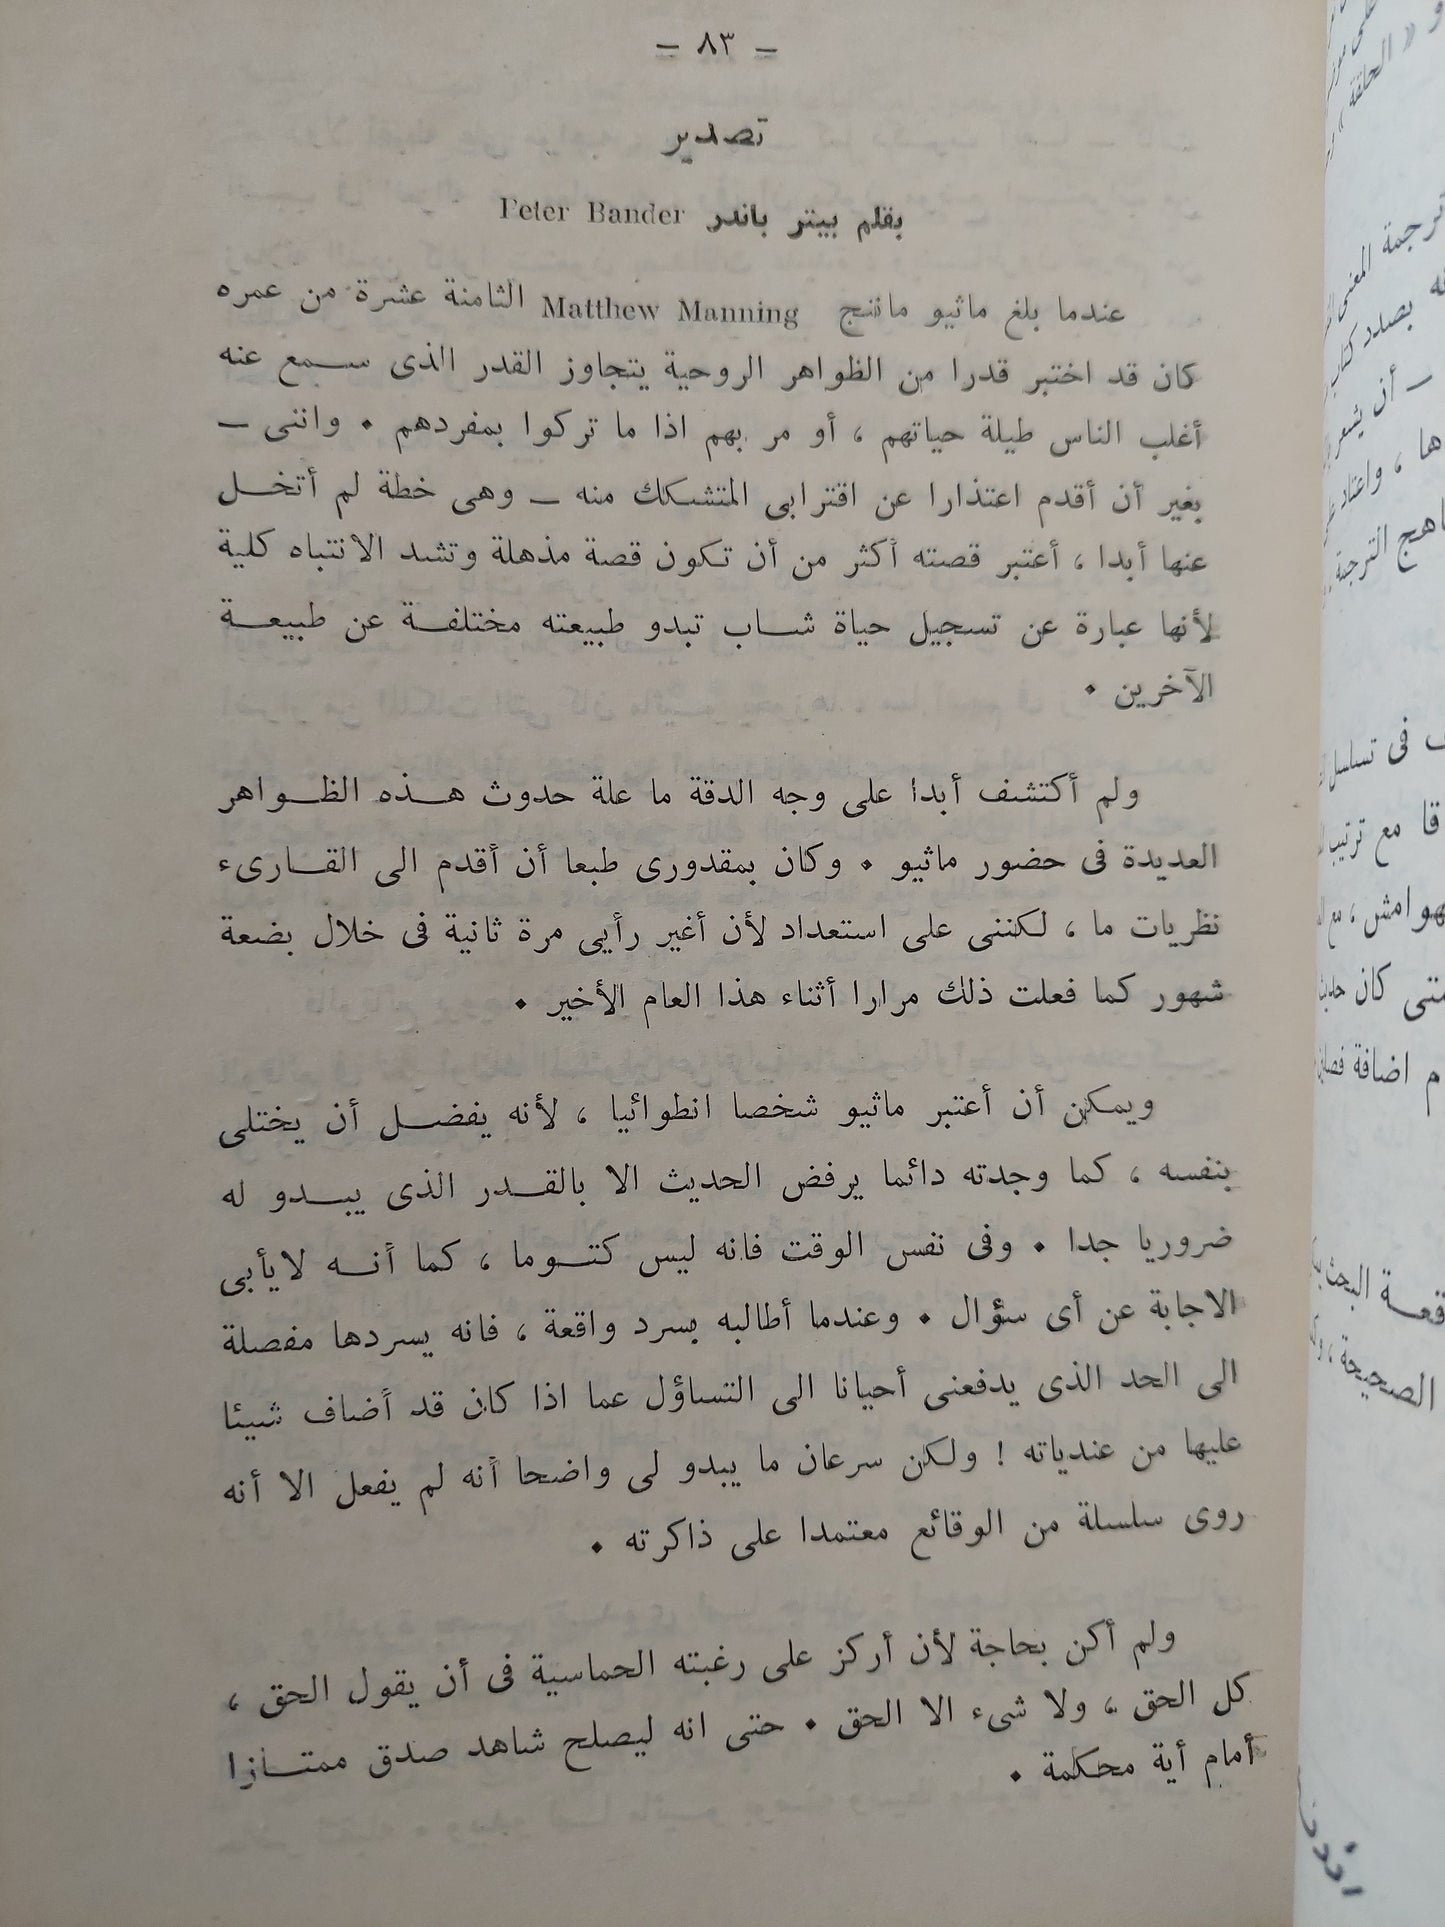 – ٨٣ –
تصدير
بقلم بيتر باندر Peter Bander
عندما بلغ ماثيو ماننج Matthew Manning الثامنة عشرة من عمره
كان قد اختبر قدرا من الظواهر الروحية يتجاوز القدر الذى سـمع عنه
أغلب الناس طيلة حياتهم ، أو مر بهم اذا ما تركوا بمفردهم . وانتى –
بغير أن أقدم اعتذارا عن اقترابى المتشكك منه – وهى خطة لم أتخـل
عنها أبدا ، أعتبر قصته أكثر من أن تكون قصة مذهلة وتشد الانتباه كلية
لأنها عبارة عن تسجيل حياة شـاب تبدو طبيعته مختلفـة عن طبيعـة
الآخرين .
ولم أكتشف أبدا على وجه الدقة ما علة حدوث هـذه الظـواهر
العديدة فى حضور ماثيو . وكان بمقدورى طبعا أن أقدم الى القـارىء
نظريات ما ، لكننى على استعداد لأن أغير رأيى مرة ثانية فى خلال بضعة
شهور كما فعلت ذلك مرارا أثناء هذا العام الأخير .
ويمكن أن أعتبر ماثيو شخصا انطوائيا ، لأنه يفضـل أن يختلى
بنفسه ، كما وجدته دائما يرفض الحديث الا بالقـدر الذى يبـدو له
ضروريا جدا . وفى نفس الوقت فانه ليس كتـوما ، كما أنـه لايأبى
الاجابة عن أى سؤال . وعندما أطالبه بسرد واقعة ، فانه يسردها مفصلة
الى الحد الذى يدفعنى أحيانا الى التساؤل عما اذا كان قد أضاف شيئا
عليها من عندياته ! ولكن سرعان ما يبدو لى واضحا أنه لم يفعل الا أنه
روى سلسلة من الوقائع معتمدا على ذاكرته .
ولم أكن بحاجة لأن أركز على رغبته الحماسية فى أن يقول الحق ،
كل الحق ، ولا شىء الا الحق . حتى انه ليصلح شاهد صدق ممتـازا
أمام أية محكمة .